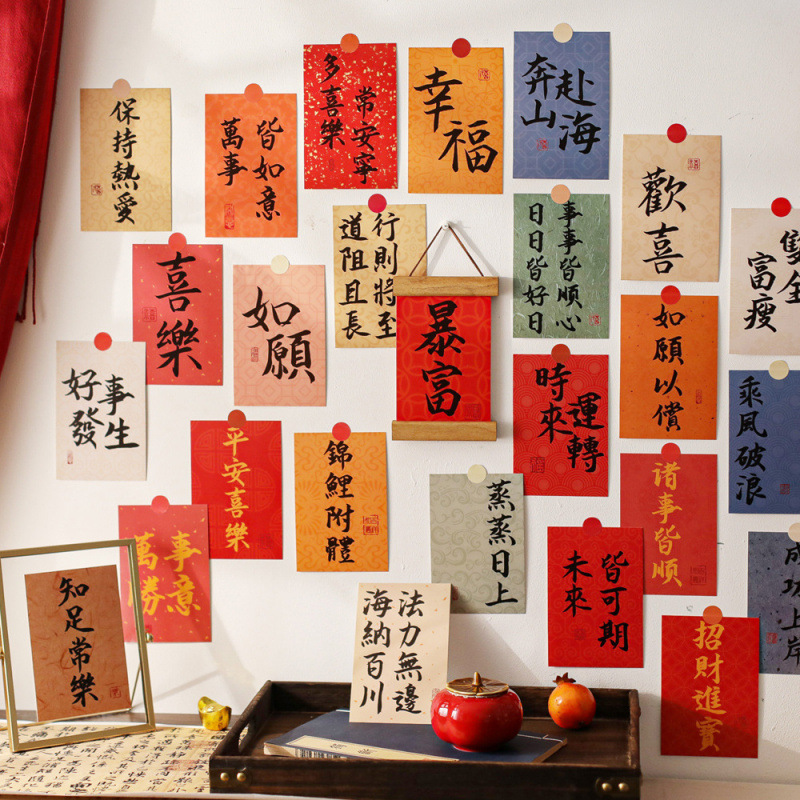 保持熱愛
皆如意
萬事
常安寧
多喜樂
幸福
赴海
奔山
歡喜
雙全
富瘦
喜樂
如願
行則將至
道阻且長
暴富
事事皆順心
日日皆好日
如願以償
乘風破浪
事生
好發
平安喜樂
錦鯉附體
時來
運轉
諸事皆順
事意
萬勝
蒸蒸日上
皆可期
未來
成功上岸
知足常樂
法力無邊
海納百川
招財進寶